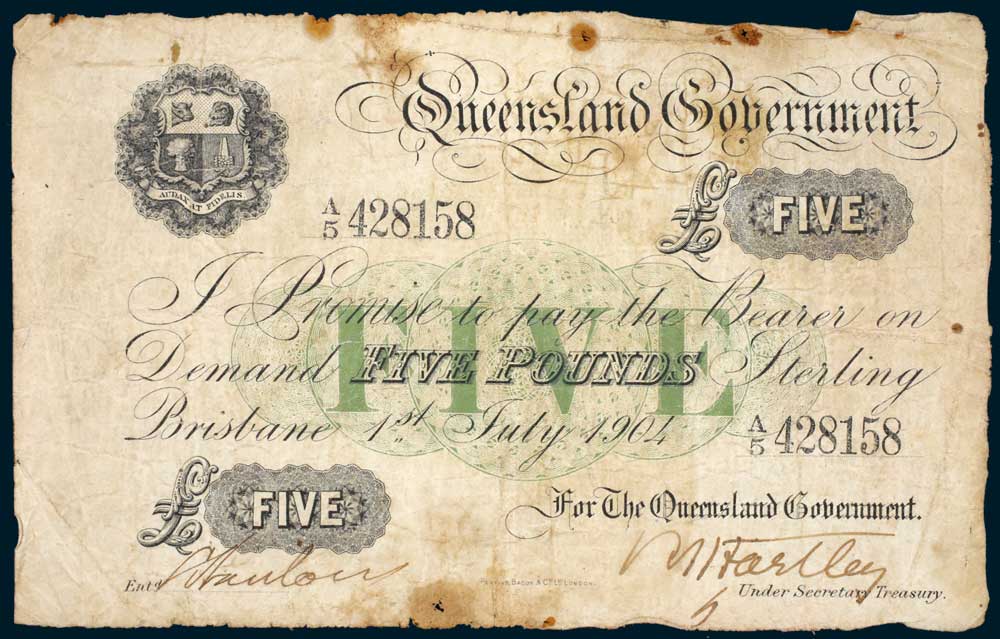 Queensland Government
AUDAX AT FIDELIS
£ FIVE
A/5 428158
I Promise to pay the Bearer on
Demand FIVE POUNDS Sterling
FIVE
Brisbane 1st July 1904
A/5 428158
£ FIVE
For The Queensland Government.
Entd
Hartley
PERKINS BACON & CO LD LONDON.
Under Secretary Treasury.